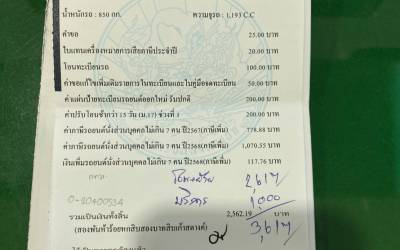 น้ำหนักรถ : 850 กก. ความจุรถ : 1,193 C.C
ค่าขอ 25.00 บาท
ใบแทนเครื่องหมายการเสียภาษีประจำปี 20.00 บาท
โอนทะเบียนรถ 100.00 บาท
ค่าขอแก้ไขเพิ่มเติมรายการในทะเบียนและในคู่มือจดทะเบียน 50.00 บาท
ค่าแผ่นป้ายทะเบียนรถยนต์ออกใหม่ รับปกติ 200.00 บาท
ค่าปรับโอนช้ากว่า 15 วัน (ม.17) ช่วงที่ 3 200.00 บาท
ค่าภาษีรถยนต์นั่งส่วนบุคคลไม่เกิน 7 คน ปี2567(ภาษีเพิ่ม) 778.88 บาท
ค่าภาษีรถยนต์นั่งส่วนบุคคลไม่เกิน 7 คน ปี2568(ภาษีเพิ่ม) 1,070.55 บาท
เงินเพิ่มรถยนต์นั่งส่วนบุคคลไม่เกิน 7 คน ปี2568(ภาษีเพิ่ม) 117.76 บาท
2,617
0-20400534 บริการ 1,000
รวมเป็นเงินทั้งสิ้น 2,562.19 บาท
3,617
(สองพันห้าร้อยหกสิบสองบาทสิบเก้าสตางค์)